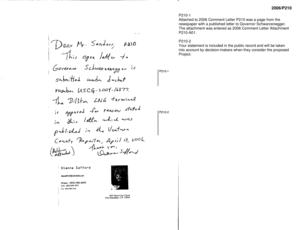 2006/P210
P210-1
Attached to 2006 Comment Letter P210 was a page from the
newspaper with a published letter to Governor Schwarzenegger.
The attachment was entered as 2006 Comment Attachment
P210-A01.
P210-2
Your statement is included in the public record and will be taken
into account by decision-makers when they consider the proposed
Project.
Dear Mr. Sanders, P210
This open letter to
Governor Schwarzenegger is
submitted under docket
number USCG-2004-16877.
The Billiton LNG terminal
is opposed for reasons stated
in this letter which was
published in the Ventura
County Reporter, April 13, 2006.
Thank you,
P210-1
P210-2